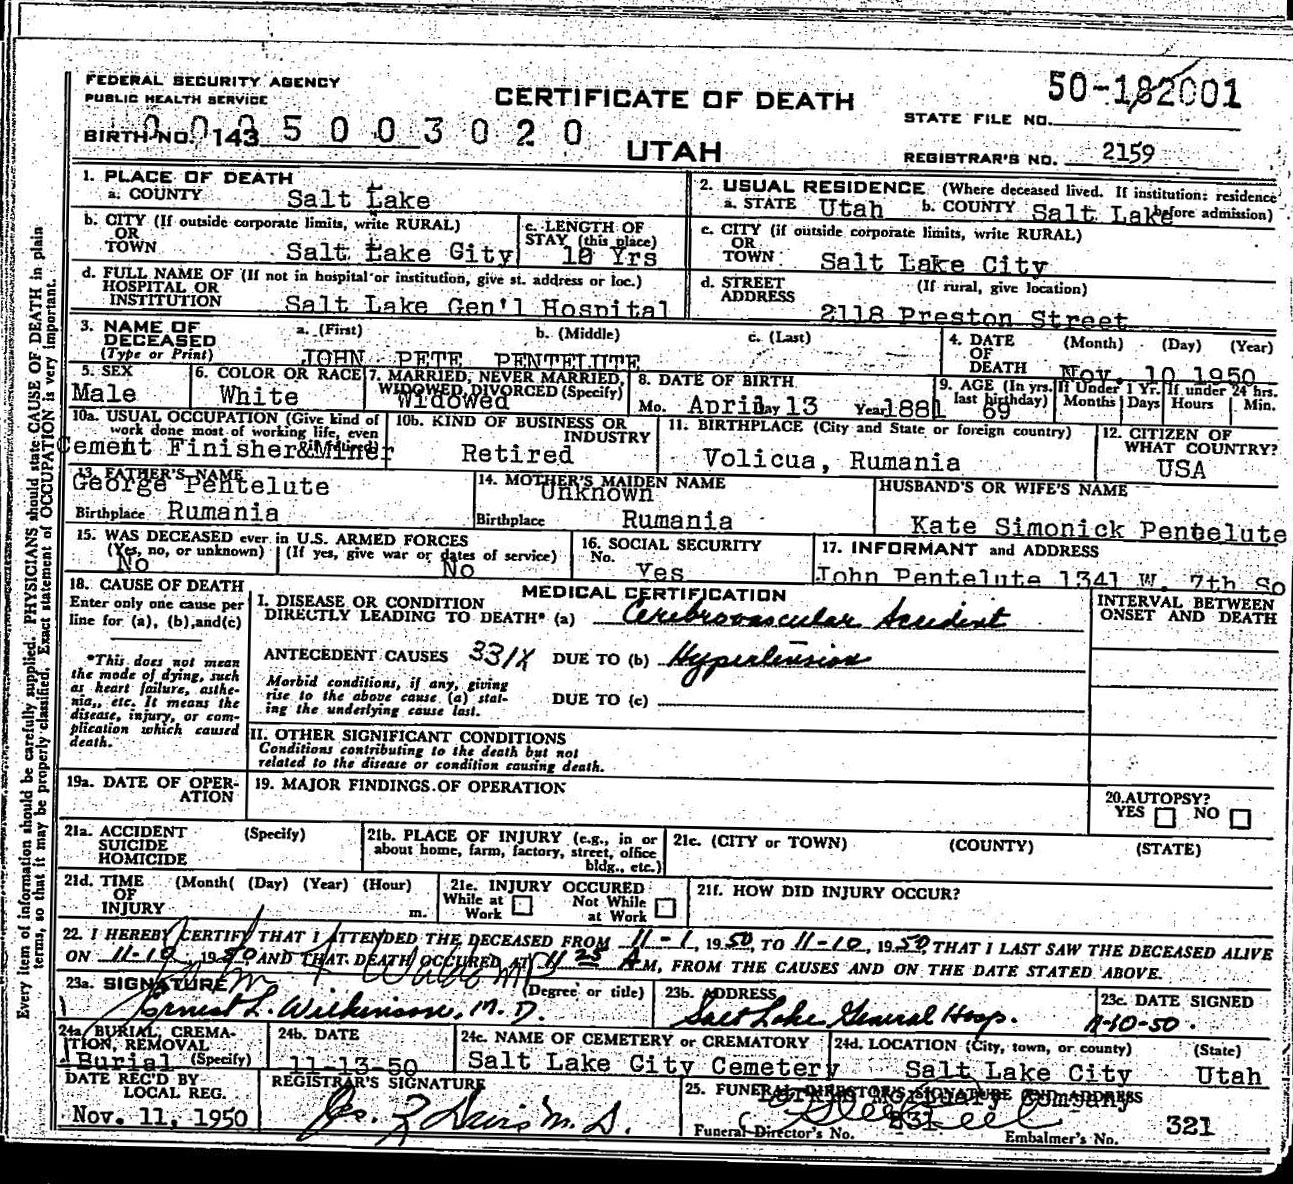 FEDERAL SECURITY AGENCY
PUBLIC HEALTH SERVICE
CERTIFICATE OF DEATH
50-182001
STATE FILE NO.
BIRTH NO. 143
0 0 0 5 0 0 3 0 2 0
UTAH
REGISTRAR'S NO. 2159
1. PLACE OF DEATH
a. COUNTY Salt Lake
2. USUAL RESIDENCE (Where deceased lived. If institution: residence before admission)
a. STATE Utah b. COUNTY Salt Lake
b. CITY (If outside corporate limits, write RURAL)
OR
TOWN Salt Lake City
c. LENGTH OF
STAY (this place)
10 Yrs
c. CITY (if outside corporate limits, write RURAL)
OR
TOWN Salt Lake City
d. FULL NAME OF (If not in hospital or institution, give st. address or loc.)
HOSPITAL OR
INSTITUTION Salt Lake Gen'l Hospital
d. STREET (If rural, give location)
ADDRESS 2118 Preston Street
3. NAME OF
DECEASED
(Type or Print)
a. (First) b. (Middle) c. (Last)
JOHN PETE PENTELUTE
4. DATE
OF
DEATH
(Month) (Day) (Year)
Nov. 10 1950
5. SEX
Male
6. COLOR OR RACE
White
7. MARRIED, NEVER MARRIED,
WIDOWED, DIVORCED (Specify)
Widowed
8. DATE OF BIRTH
Mo. April Day 13 Year 1881
9. AGE (In yrs. last birthday) 69
If Under 1 Yr. Months Days
If under 24 hrs. Hours Min.
10a. USUAL OCCUPATION (Give kind of
work done most of working life, even
Cement Finisher&Miner
10b. KIND OF BUSINESS OR
INDUSTRY
Retired
11. BIRTHPLACE (City and State or foreign country)
Volicua, Rumania
12. CITIZEN OF
WHAT COUNTRY?
USA
13. FATHER'S NAME
George Pentelute
Birthplace Rumania
14. MOTHER'S MAIDEN NAME
Unknown
Birthplace Rumania
HUSBAND'S OR WIFE'S NAME
Kate Simonick Pentelute
15. WAS DECEASED ever in U.S. ARMED FORCES
(Yes, no, or unknown) (If yes, give war or dates of service)
No No
16. SOCIAL SECURITY
No. Yes
17. INFORMANT and ADDRESS
John Pentelute 1341 W. 7th So
18. CAUSE OF DEATH
Enter only one cause per
line for (a), (b), and (c)
*This does not mean
the mode of dying, such
as heart failure, asthe-
nia,, etc. It means the
disease, injury, or com-
plication which caused
death.
MEDICAL CERTIFICATION
I. DISEASE OR CONDITION
DIRECTLY LEADING TO DEATH* (a) Cerebrovascular Accident
ANTECEDENT CAUSES 331X DUE TO (b) Hypertension
Morbid conditions, if any, giving
rise to the above cause (a) stat-
ing the underlying cause last.
DUE TO (c)
II. OTHER SIGNIFICANT CONDITIONS
Conditions contributing to the death but not
related to the disease or condition causing death.
INTERVAL BETWEEN
ONSET AND DEATH
19a. DATE OF OPER-
ATION
19. MAJOR FINDINGS OF OPERATION
20. AUTOPSY?
YES NO
21a. ACCIDENT (Specify)
SUICIDE
HOMICIDE
21b. PLACE OF INJURY (e.g., in or
about home, farm, factory, street, office
bldg., etc.)
21c. (CITY or TOWN) (COUNTY) (STATE)
21d. TIME (Month( (Day) (Year) (Hour)
OF
INJURY m.
21e. INJURY OCCURED
While at Work Not While at Work
21f. HOW DID INJURY OCCUR?
22. I HEREBY CERTIFY THAT I ATTENDED THE DECEASED FROM 11-1, 1950, TO 11-10, 1950 THAT I LAST SAW THE DECEASED ALIVE
ON 11-10, 1950 AND THAT DEATH OCCURED AT 11 25 A M, FROM THE CAUSES AND ON THE DATE STATED ABOVE.
23a. SIGNATURE (Degree or title)
Ernest L. Wilkinson, M.D.
23b. ADDRESS
Salt Lake General Hosp.
23c. DATE SIGNED
11-10-50.
24a. BURIAL, CREMA-
TION, REMOVAL
Burial (Specify)
24b. DATE
11-13-50
24c. NAME OF CEMETERY or CREMATORY
Salt Lake City Cemetery
24d. LOCATION (City, town, or county) (State)
Salt Lake City Utah
DATE REC'D BY
LOCAL REG.
Nov. 11, 1950
REGISTRAR'S SIGNATURE
25. FUNERAL DIRECTOR'S SIGNATURE and ADDRESS
Mortuary Company
Funeral Director's No. 231
Embalmer's No. 321
Every item of information should be carefully supplied. PHYSICIANS should state CAUSE OF DEATH in plain
terms, so that it may be properly classified. Exact statement of OCCUPATION is very important.